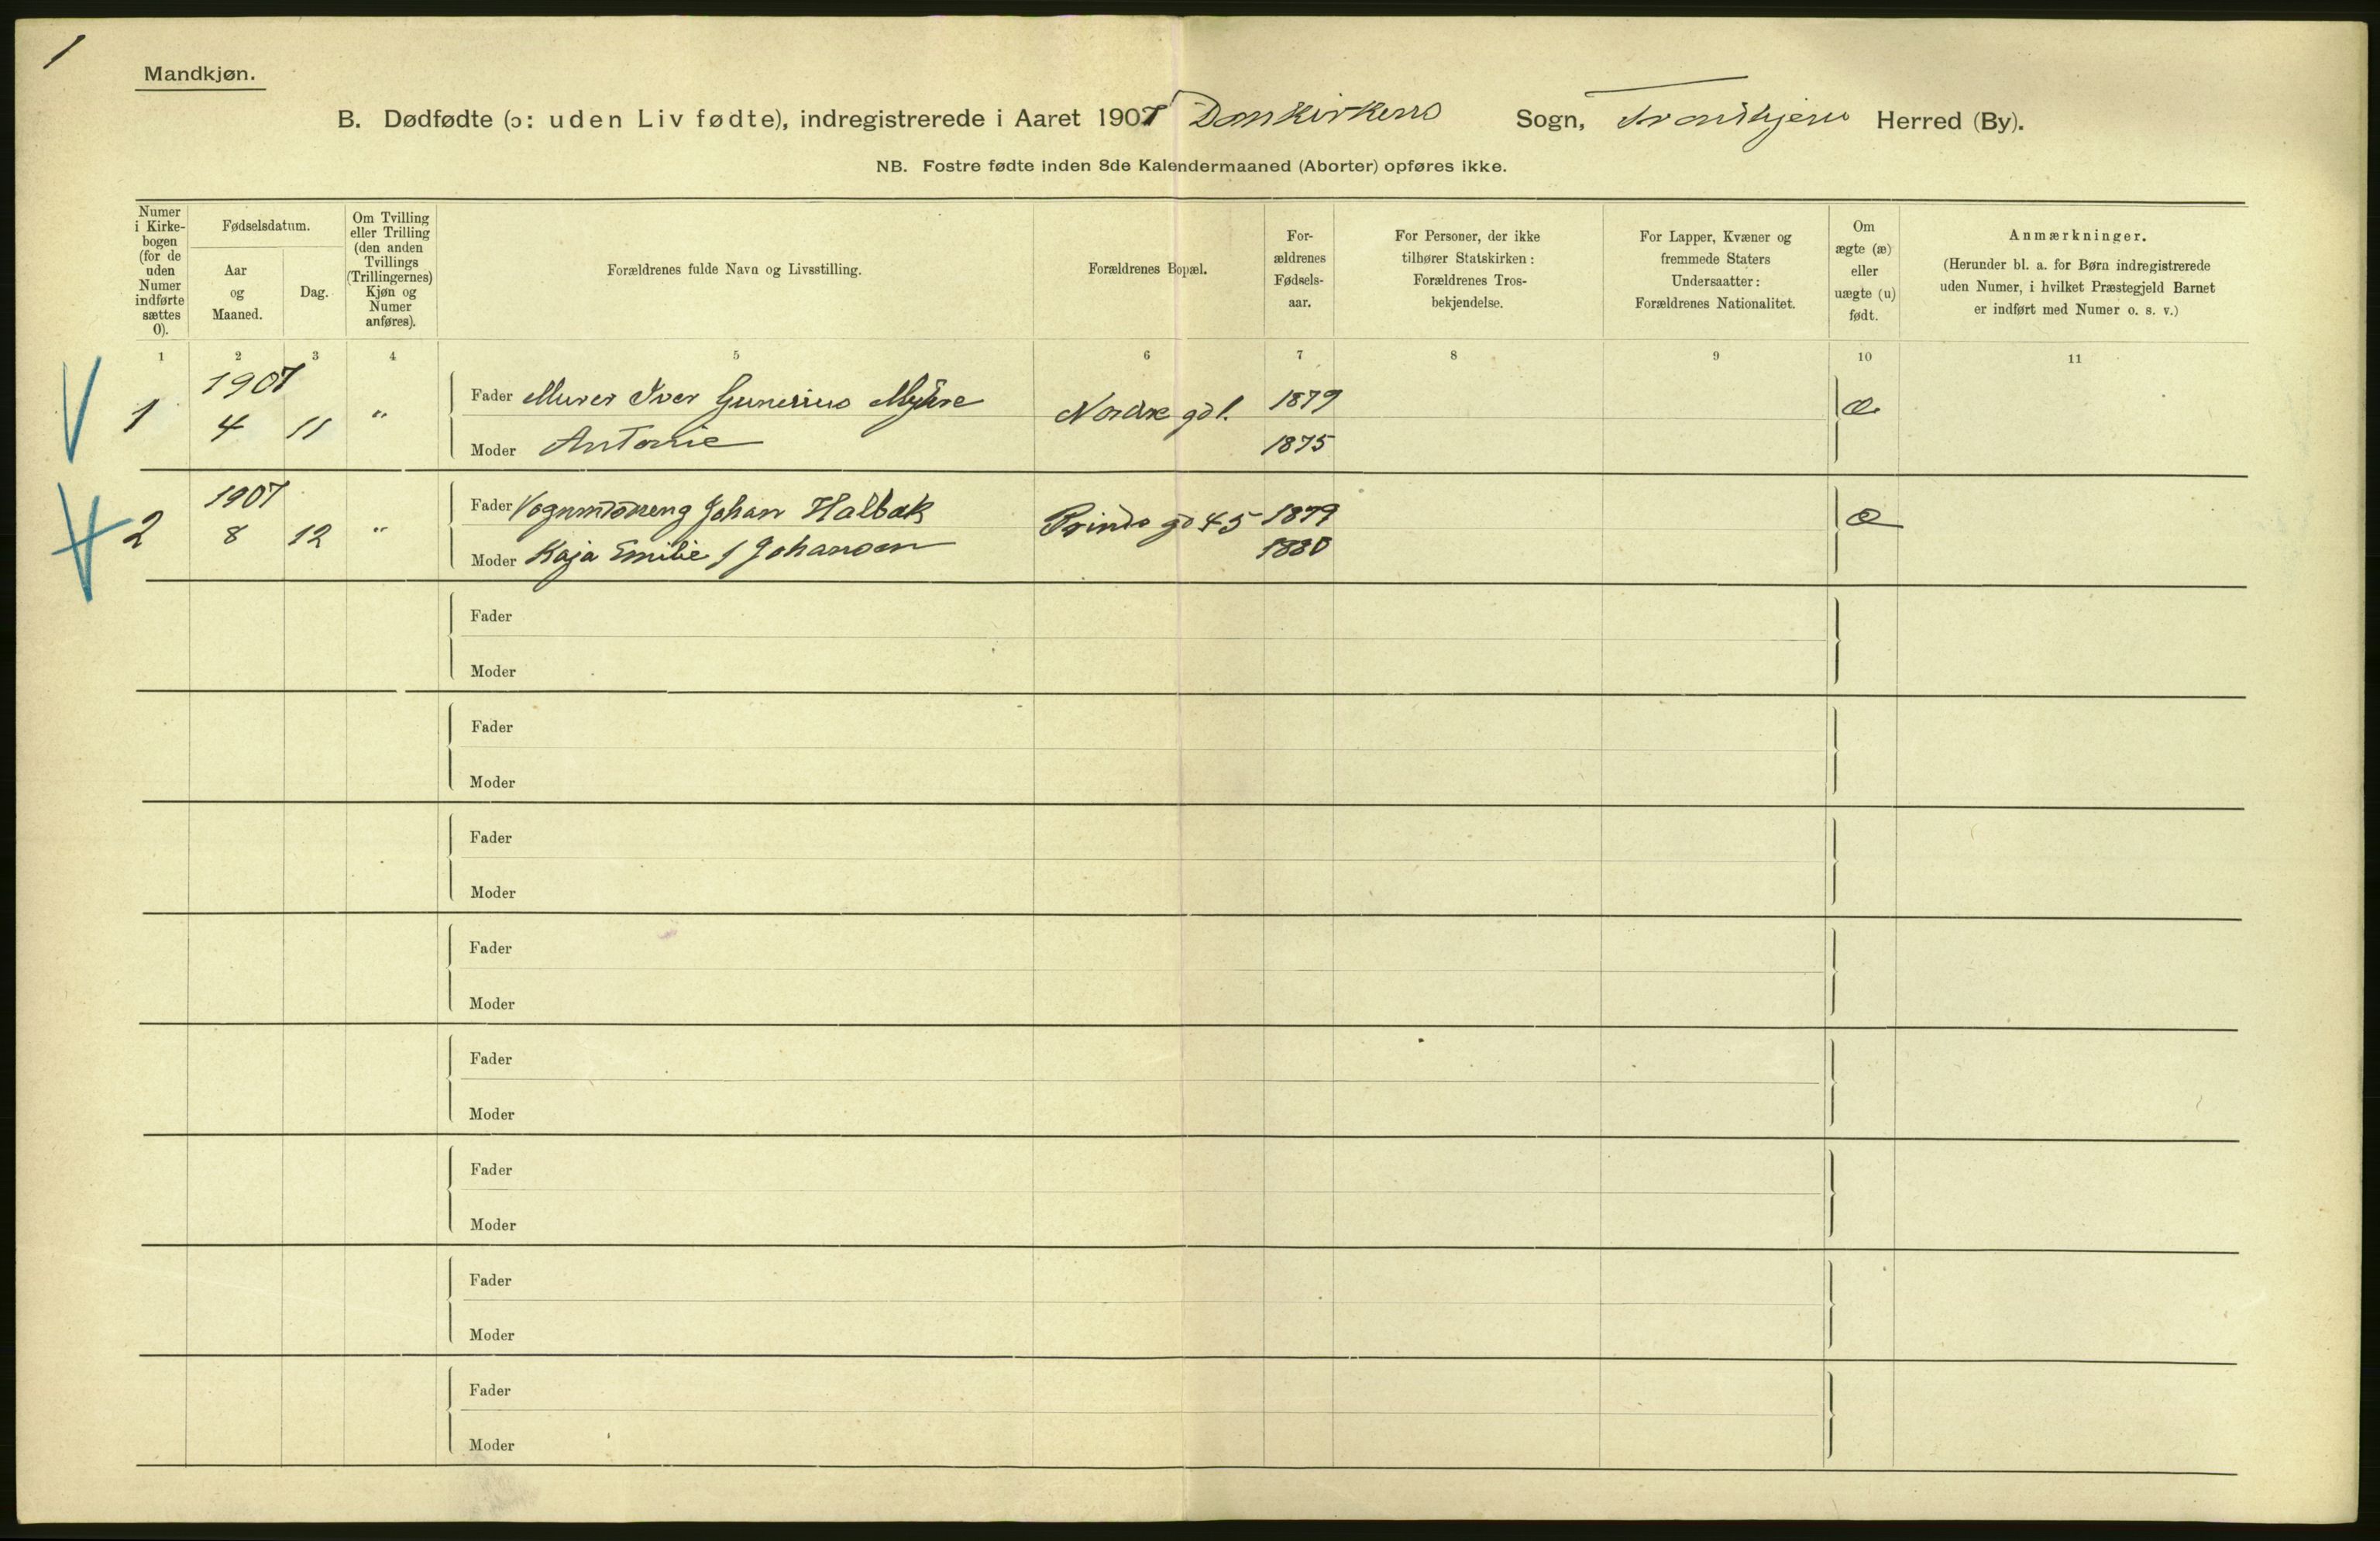 1
Mandkjøn.
B. Dødfødte (ɔ: uden Liv fødte), indregistrerede i Aaret 1907 Domkirkens Sogn, Trondhjems Herred (By).
NB. Fostre fødte inden 8de Kalendermaaned (Aborter) opføres ikke.
Numer i Kirke-bogen (for de uden Numer indførte sættes 0).
Fødselsdatum.
Aar og Maaned.
Dag.
Om Tvilling eller Trilling (den anden Tvillings (Trillingernes) Kjøn og Numer anføres).
Forældrenes fulde Navn og Livsstilling.
Forældrenes Bopæl.
For-ældrenes Fødsels-aar.
For Personer, der ikke tilhører Statskirken: Forældrenes Tros-bekjendelse.
For Lapper, Kvæner og fremmede Staters Undersaatter: Forældrenes Nationalitet.
Om ægte (æ) eller uægte (u) født.
Anmærkninger.
(Herunder bl. a. for Børn indregistrerede uden Numer, i hvilket Præstegjeld Barnet er indført med Numer o. s. v.)
1 2 3 4 5 6 7 8 9 10 11
1 1907 4 11 " Fader Murer Iver Gunerius Myhre Nordre gd 1. 1879 æ
Moder Antonie 1875
2 1907 8 12 " Fader Johan Halbak Prinds gd 45 1879 æ
Moder Kaja Emilie f Johansen 1880
Fader
Moder
Fader
Moder
Fader
Moder
Fader
Moder
Fader
Moder
Fader
Moder
Fader
Moder
Fader
Moder